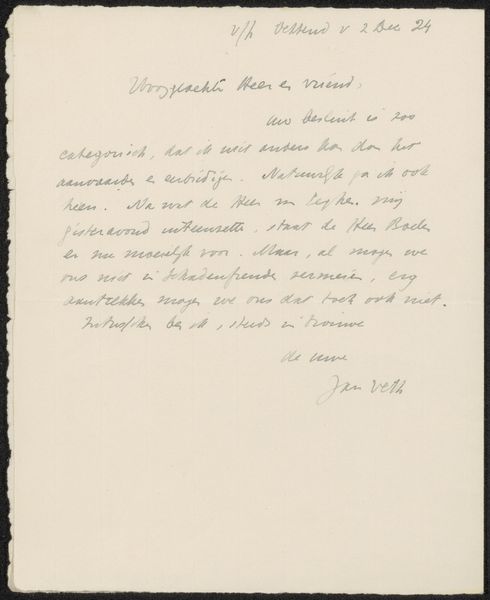 2 Dec 24
Hooggeachte Heer en vriend,
Uw besluit is zoo
categorisch, dat ik niet anders kan dan het
aanvaarden en eerbiedigen. Natuurlijk ga ik ook
heen. Na wat de Heer mij
gisteravond uiteenzette, staat de Heer
er nu moeielijk voor. Maar, al mogen we
ons niet in Schadenfreude vermeien, erg
aantrekken mogen we ons dat toch ook niet.
ik, steeds in trouwe
de uwe
Jan Veth